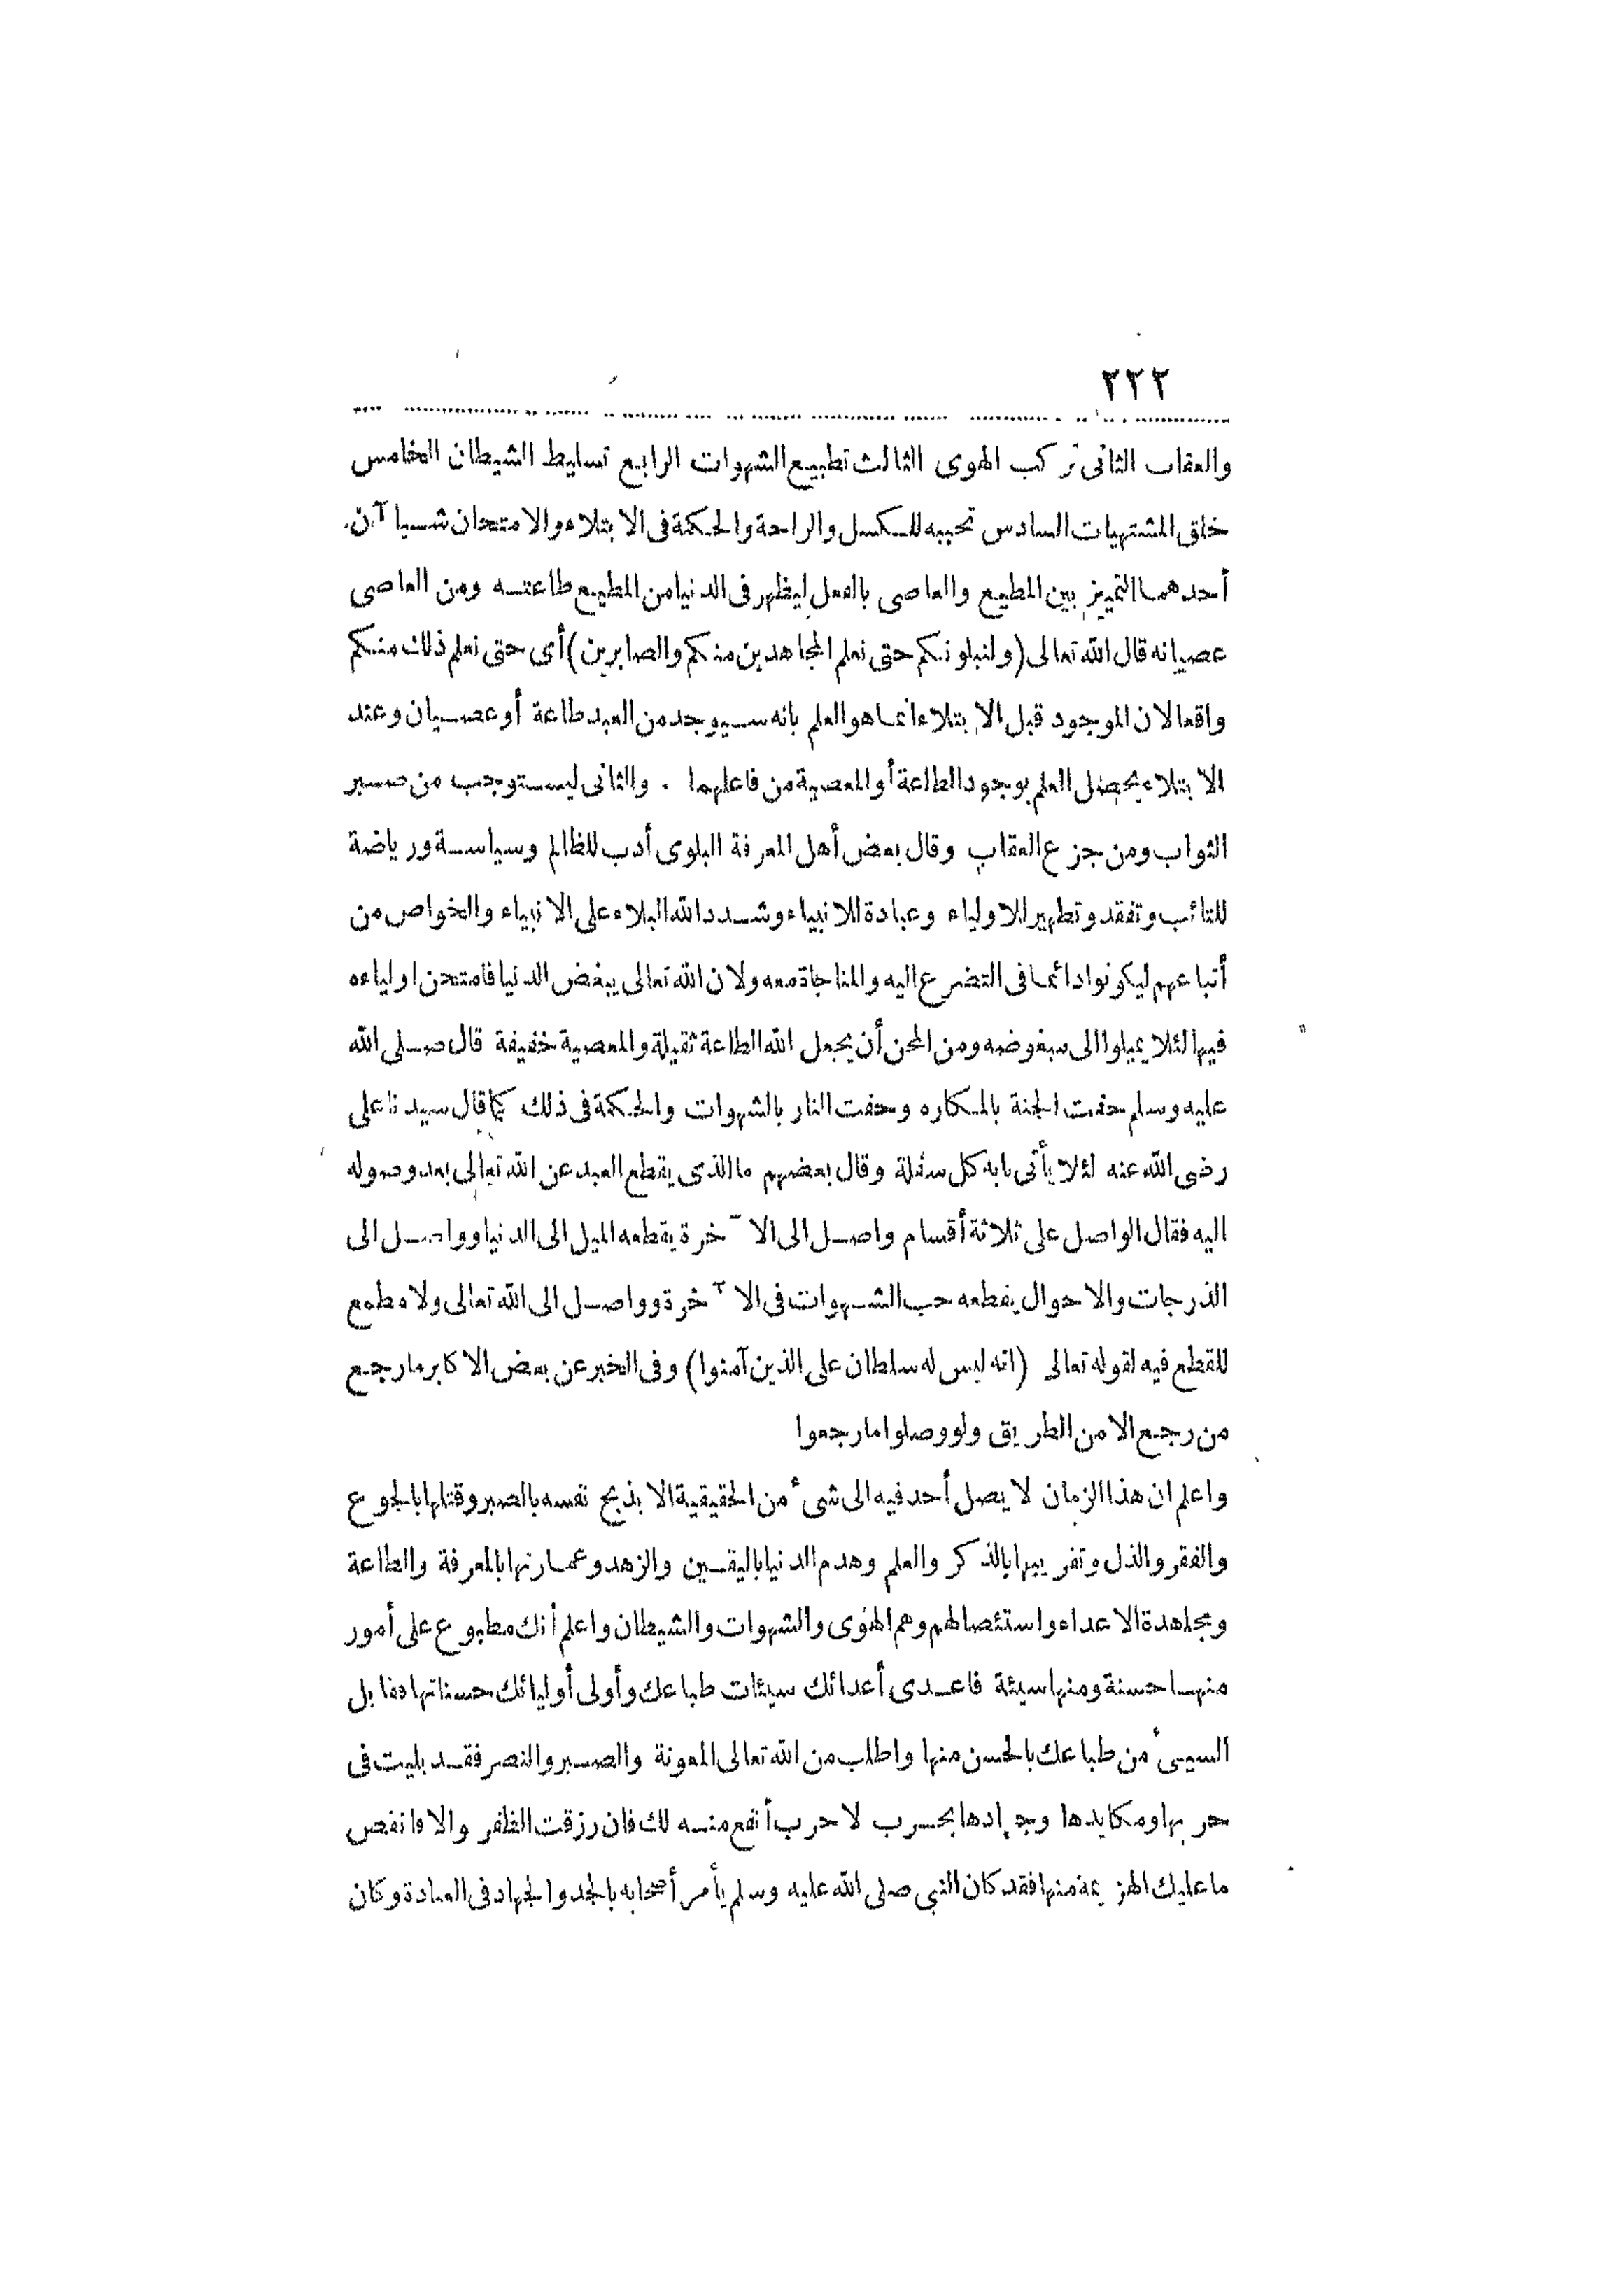 ٢٢٢
والعقاب الثانى تركب الهوى الثالث تطبيع الشهوات الرابع تسليط الشيطان الخامس
خلق المشتهيات السادس تحببه للكسل والراحة والحكمة فى الابتلاء والامتحان شيا آن
أحدهما التمييز بين المطيع والعاصى بالفعل ليظهر فى الدنيا من المطيع طاعته ومن العاصى
عصيانه قال الله تعالى (ولنبلونكم حتى نعلم المجاهدين منكم والصابرين) أى حتى نعلم ذلك منكم
واقعا لان الموجود قبل الابتلاء انما هو العلم بانه سيوجد من العبد طاعة أو عصيان وعند
الابتلاء يحصل العلم بوجود الطاعة أو المعصية من فاعلهما . والثانى ليستوجب من صبر
الثواب ومن جزع العقاب وقال بعض أهل المعرفة البلوى أدب للظالم وسياسة ورياضة
للتائب وتفقد وتطهير للاولياء وعبادة للانبياء وشدد الله البلاء على الانبياء والخواص من
أتباعهم ليكونوا دائما فى التضرع اليه والمناجاة معه ولان الله تعالى يبغض الدنيا فامتحن اولياءه
فيها لئلا يميلوا الى مبغوضه ومن المحن أن يجعل الله الطاعة ثقيلة والمعصية خفيفة قال صلى الله
عليه وسلم حفت الجنة بالمكاره وحفت النار بالشهوات والحكمة فى ذلك كما قال سيدنا على
رضى الله عنه لئلا يأتى بابه كل سفلة وقال بعضهم ما الذى يقطع العبد عن الله تعالى بعد وصوله
اليه فقال الواصل على ثلاثة أقسام واصل الى الآخرة يقطعه الميل الى الدنيا وواصل الى
الدرجات والاحوال يقطعه حب الشهوات فى الآخرة وواصل الى الله تعالى ولا مطمع
للقطع فيه لقوله تعالى (انه ليس له سلطان على الذين آمنوا) وفى الخبر عن بعض الاكابر ما رجع
من رجع الا من الطريق ولو وصلوا ما رجعوا
واعلم ان هذا الزمان لا يصل أحد فيه الى شىء من الحقيقية الا بذبح نفسه بالصبر وقتلها بالجوع
والفقر والذل وتفريبها بالذكر والعلم وهدم الدنيا باليقين والزهد وعمارتها بالمعرفة والطاعة
ومجاهدة الاعداء واستئصالهم وهم الهوى والشهوات والشيطان واعلم أنك مطبوع على أمور
منها حسنة ومنها سيئة فاعدى أعدائك سيئات طباعك وأولى أوليائك حسناتها فقابل
السيىء من طباعك بالحسن منها واطلب من الله تعالى المعونة والصبر والنصر فقد بليت فى
حربها ومكايدها وجهادها بحرب لا حرب أنفع منه لك فان رزقت الظفر والا فانفض
ما عليك الهزيمة منها فقد كان النبى صلى الله عليه وسلم يأمر أصحابه بالجد والجهاد فى العبادة وكان